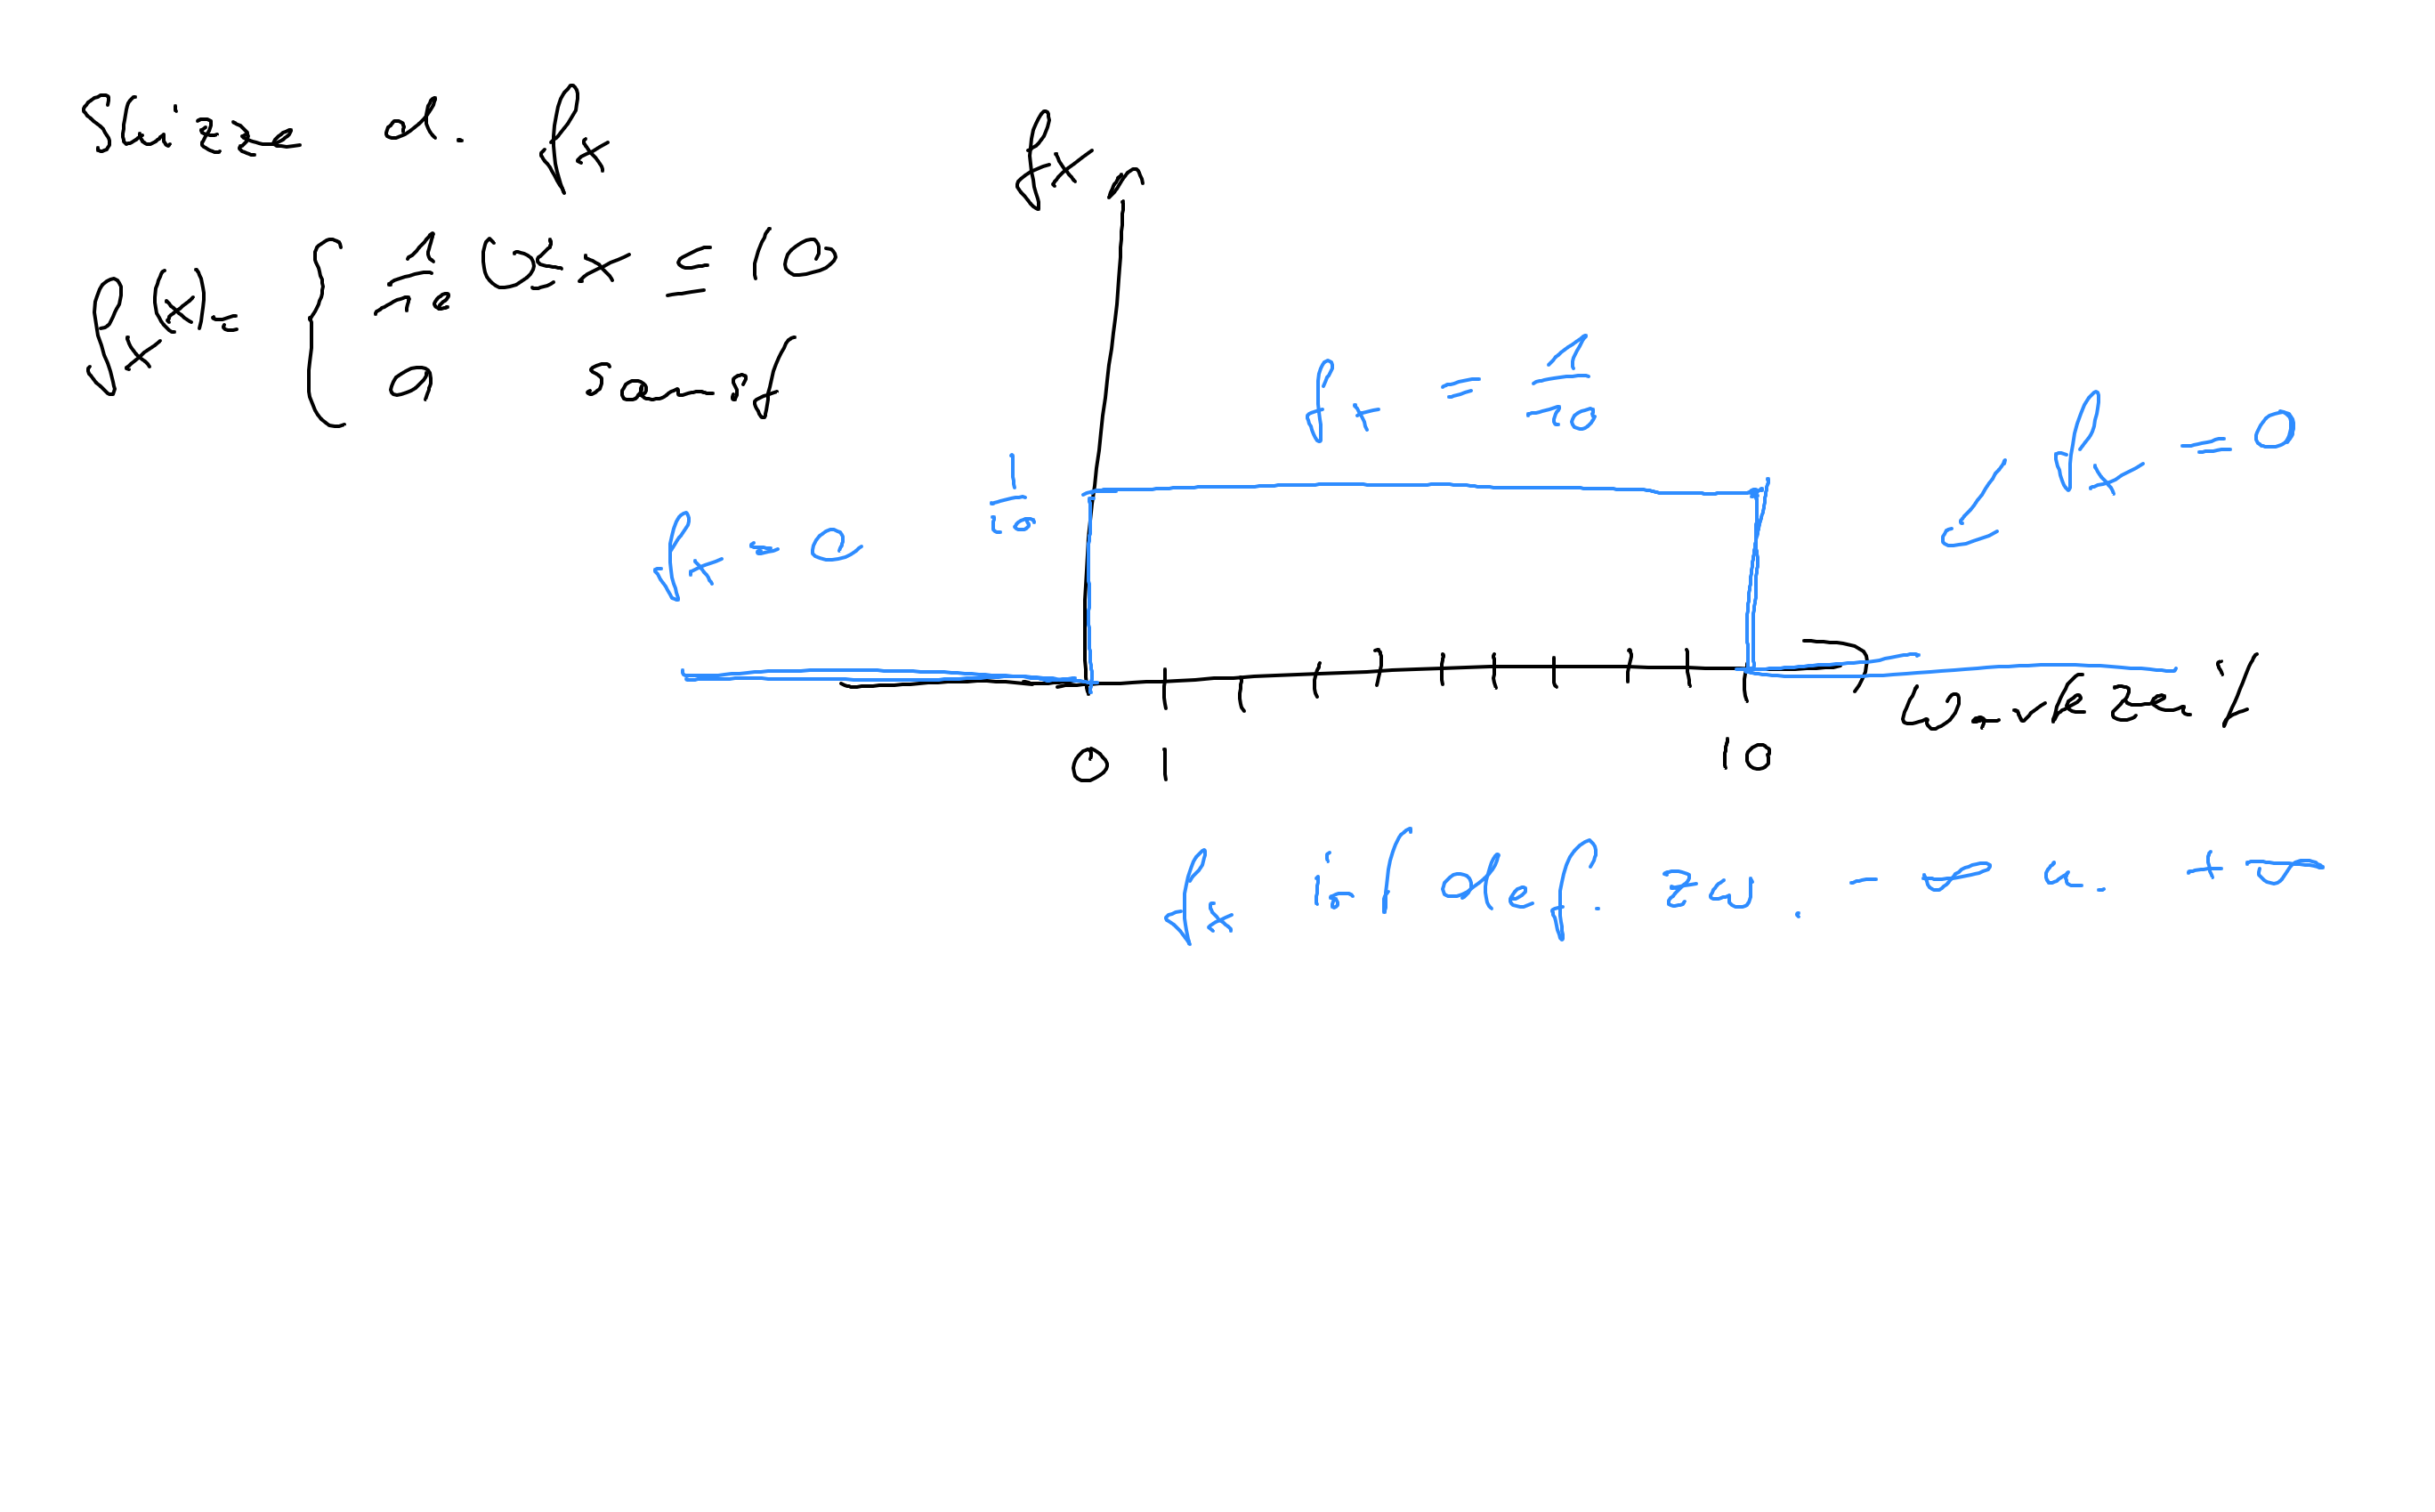 Skizze d. fx
fx(x) = { 1/10 0 ≤ x ≤ 10
0 sonst
fx
fx = 1/10
fx = 0
1/10
fx = 0
Wartezeit
0 1 10
fx ist def. zw. -∞ u. +∞